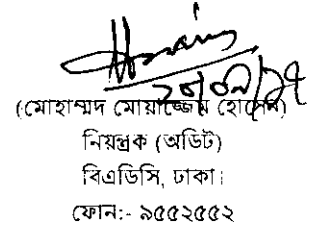 ২০/০৭/১৭
(মোহাম্মদ মোয়াজ্জেম হোসেন)
নিয়ন্ত্রক (অডিট)
বিএডিসি, ঢাকা।
ফোন:- ৯৫৫২৫৫২